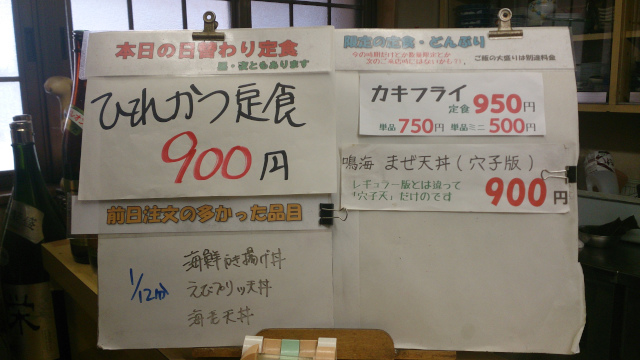 本日の日替わり定食
昼・夜ともあります
ひれかつ定食
900円
前日注文の多かった品目
1/12分
海鮮かき揚げ丼
えびプリッ天丼
海老天丼
限定の定食・どんぶり
ご飯の大盛りは別途料金
カキフライ
定食 950円
単品 750円 単品ミニ 500円
鳴海 まぜ天丼(穴子版)
レギュラー版とは違って
「穴子天」だけのです
900円
栄